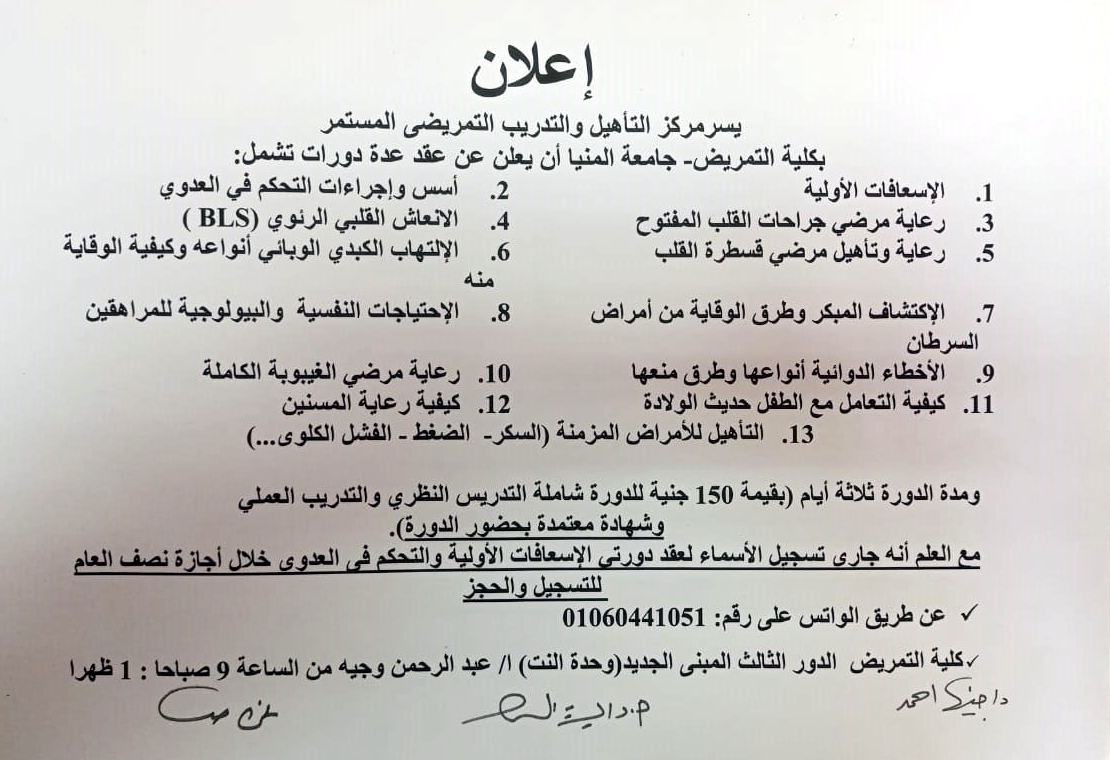 إعلان
يسرمركز التأهيل والتدريب التمريضى المستمر
بكلية التمريض- جامعة المنيا أن يعلن عن عقد عدة دورات تشمل:
1. الإسعافات الأولية 2. أسس وإجراءات التحكم في العدوي
3. رعاية مرضي جراحات القلب المفتوح 4. الانعاش القلبي الرئوي (BLS )
5. رعاية وتأهيل مرضي قسطرة القلب 6. الإلتهاب الكبدي الوبائي أنواعه وكيفية الوقاية
منه
7. الإكتشاف المبكر وطرق الوقاية من أمراض 8. الإحتياجات النفسية والبيولوجية للمراهقين
السرطان
9. الأخطاء الدوائية أنواعها وطرق منعها 10. رعاية مرضي الغيبوبة الكاملة
11. كيفية التعامل مع الطفل حديث الولادة 12. كيفية رعاية المسنين
13. التأهيل للأمراض المزمنة (السكر- الضغط - الفشل الكلوى...)
ومدة الدورة ثلاثة أيام (بقيمة 150 جنية للدورة شاملة التدريس النظري والتدريب العملي
وشهادة معتمدة بحضور الدورة).
مع العلم أنه جارى تسجيل الأسماء لعقد دورتي الإسعافات الأولية والتحكم فى العدوى خلال أجازة نصف العام
للتسجيل والحجز
✓ عن طريق الواتس على رقم: 01060441051
✓كلية التمريض الدور الثالث المبنى الجديد(وحدة النت) ا/ عبد الرحمن وجيه من الساعة 9 صباحا : 1 ظهرا